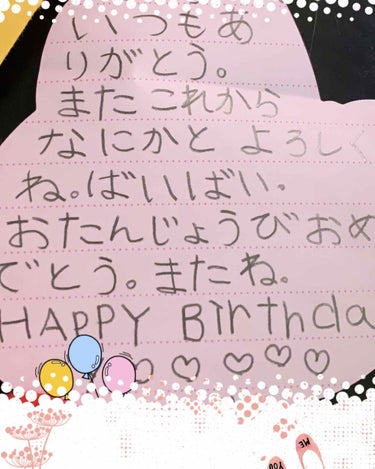 いつもあ
りがとう。
またこれから
なにかと よろしく
ね。ばいばい。
おたんじょうびおめ
でとう。またね。
HAPPY Birthda
ME
YOU